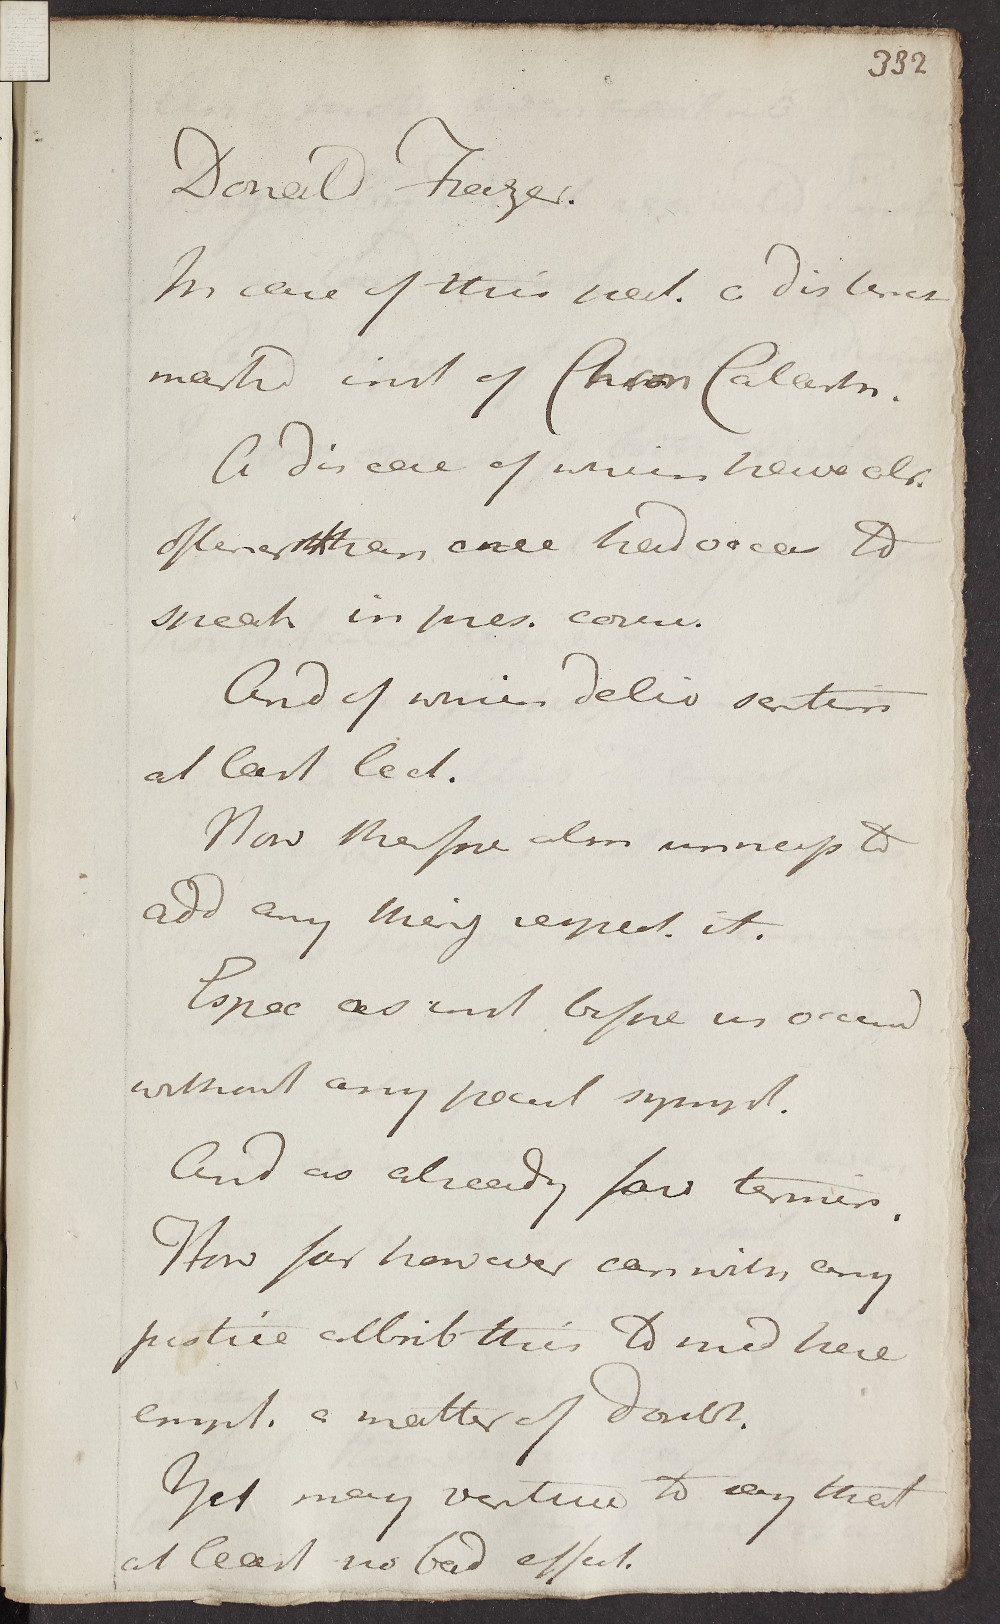 332
Donald Frazer.
In case of this pat. a distinct
markd inst of Chron Catarrh.
A disease of which have alr.
oftener than once had occas to
speak in pres. cours.
And of which delivd sentims
at last lect.
Now therfore alm unnecess to
add any thing respect. it.
Espec as inst before us occurd
without any pecul sympt.
And as already favr termin.
How far however can with any
justice attrib this to med here
empl. a matter of doubt.
Yet may venture to say that
at least no bad effect.